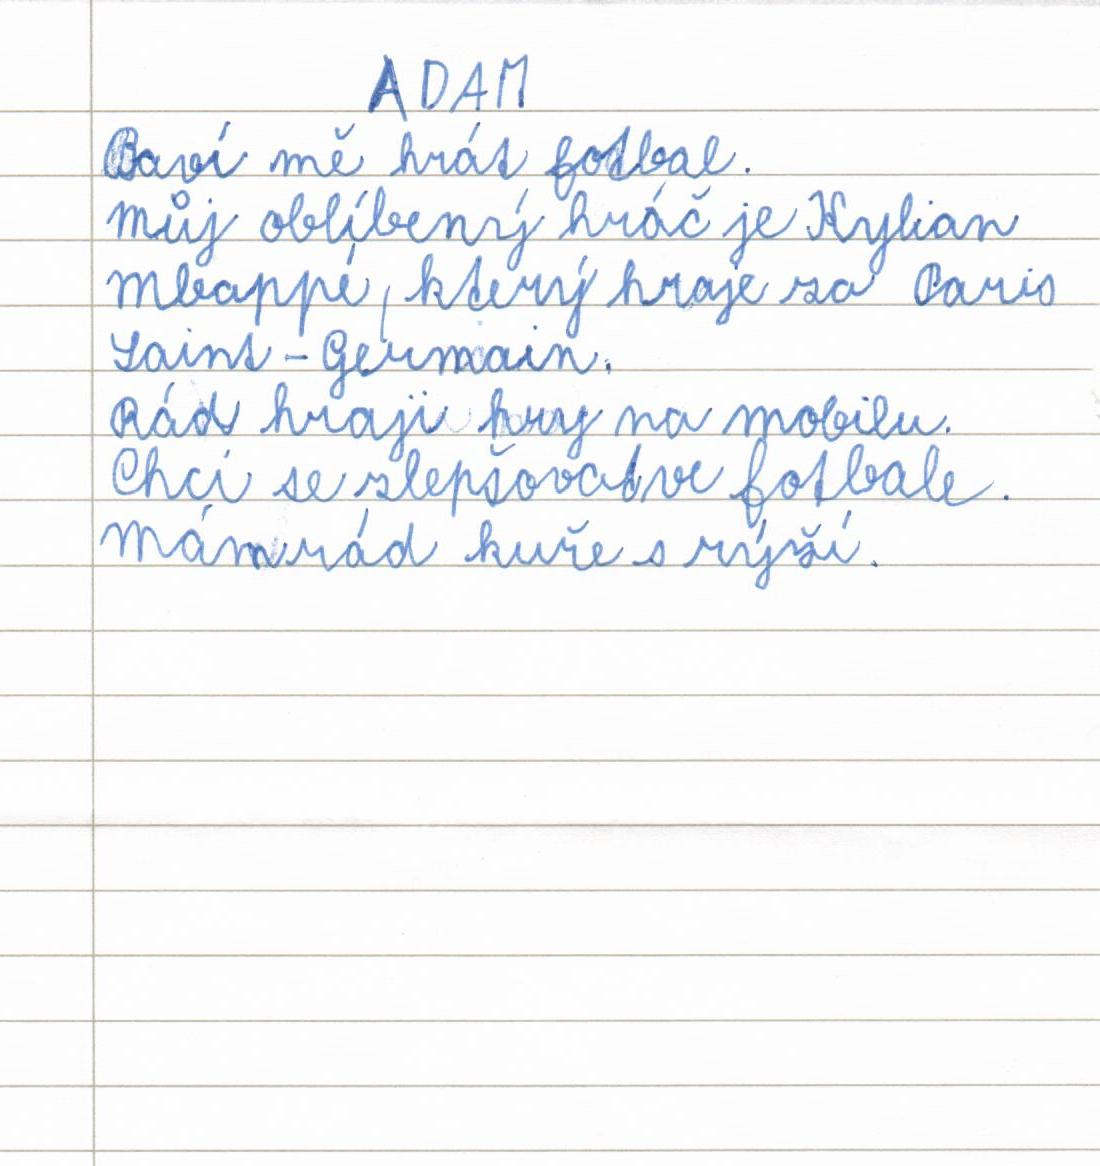 ADAM
Baví mě hrát fotbal.
Můj oblíbený hráč je Kylian
Mbappé, který hraje za Paris
Saint-Germain.
Rád hraji hry na mobilu.
Chci se zlepšovat ve fotbale.
Mám rád kuře s rýží.